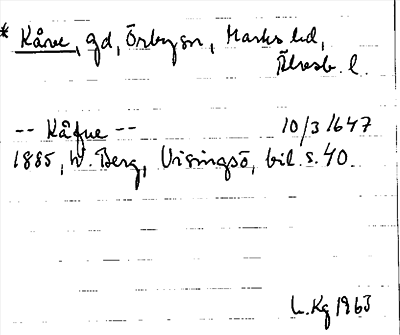 * Kårve, gd, Örby sn, Marks hd,
Älvsb. l.
-- Kåfue -- 10/3 1647
1885, W. Berg, Visingsö, bil. s. 40.
L. Kg 1963